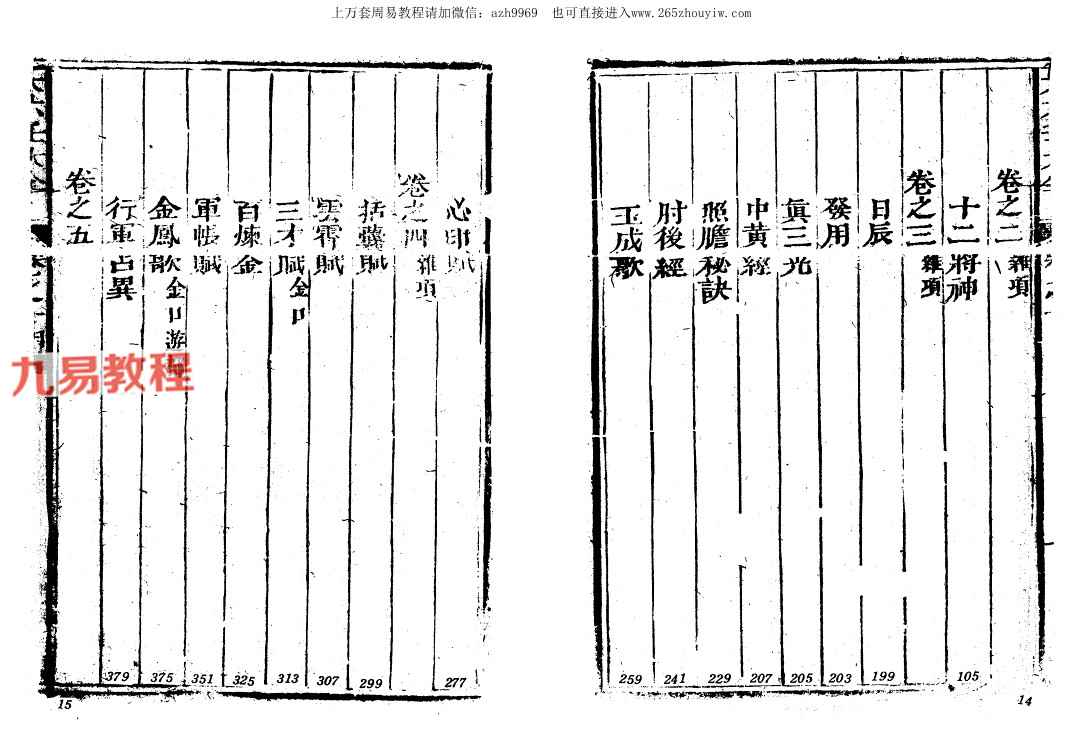 上万套周易教程请加微信：azh9969　也可直接进入www.265zhouyiw.com
卷之二 雜項
十二將神 105
卷之三 雜項
日辰 199
發用 203
眞三光 205
中黃經 207
照膽秘訣 229
肘後經 241
玉成歌 259
14
心印賦 277
卷之四 雜項
括囊賦 299
雲霄賦 307
三才賦 金口 313
百煉金 325
軍帳賦 351
金鳳歌 金口 游 375
行軍占異 379
卷之五
15
九易教程